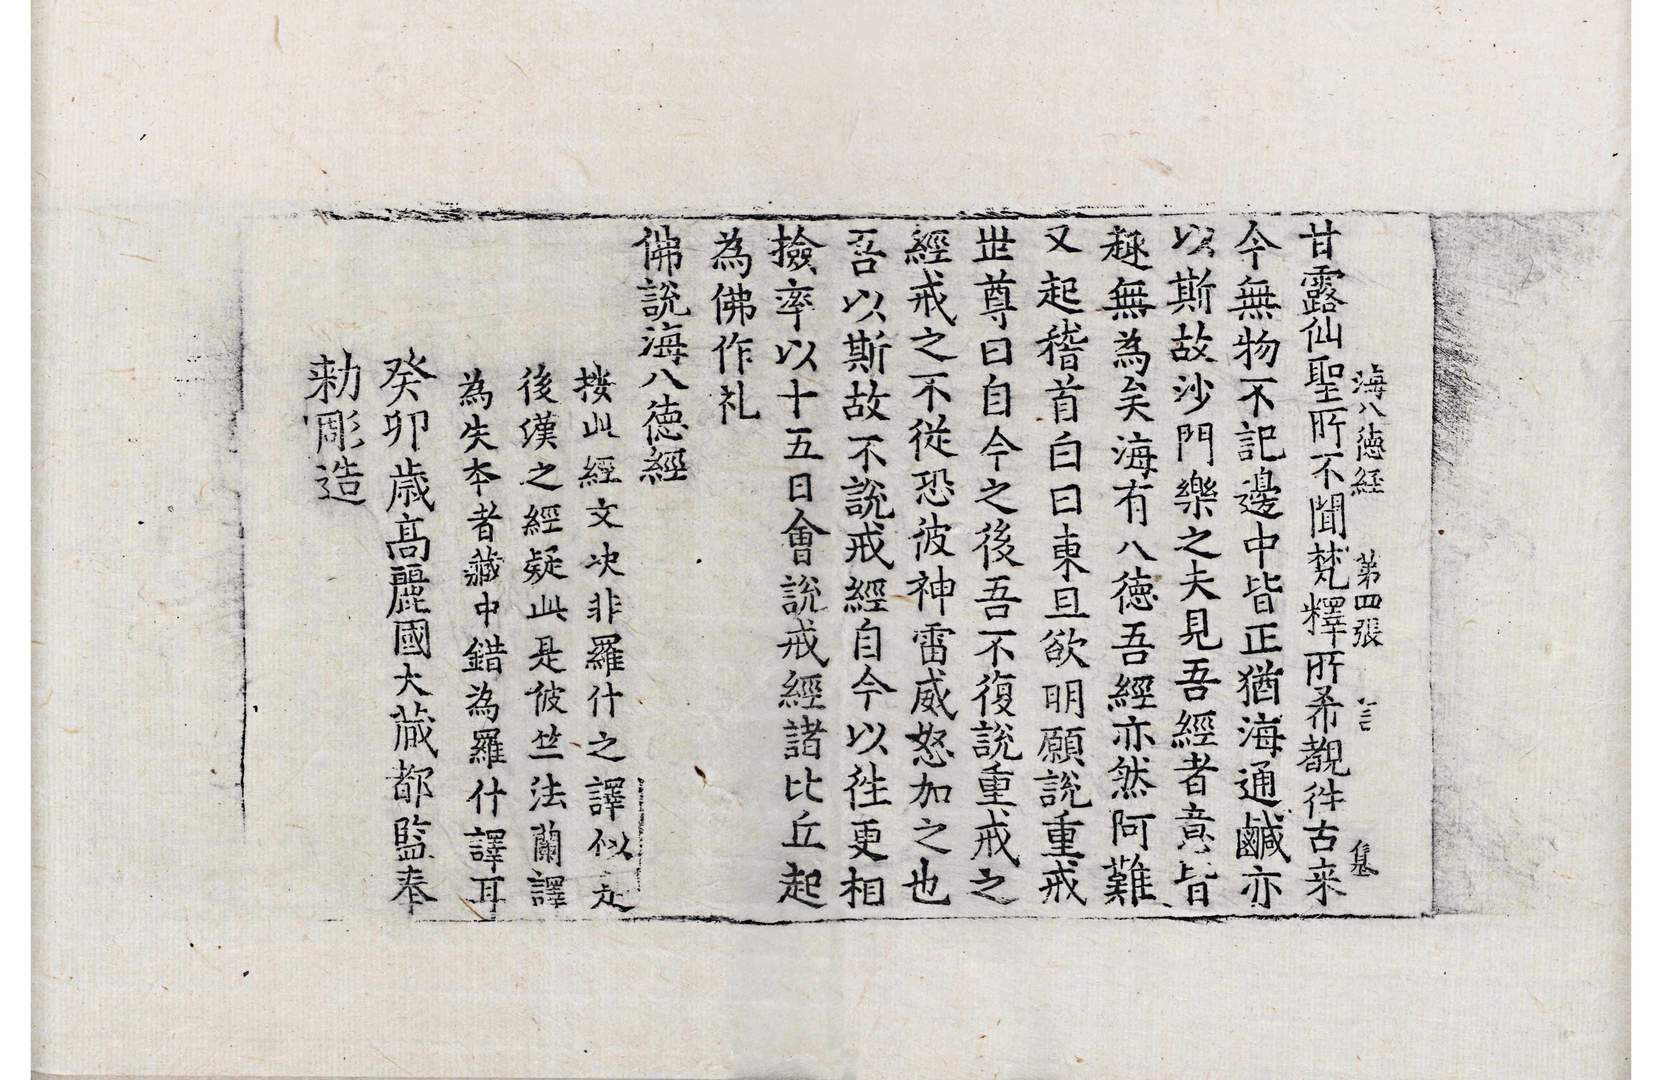 海八德経 第四張 言 集
甘露仙聖所不聞梵釋所希覩往古来
今無物不記邊中皆正猶海通鹹亦
以斯故沙門樂之夫見吾經者意皆
趣無為矣海有八德吾經亦然阿難
又起稽首白曰東旦欲明願説重戒
世尊曰自今之後吾不復説重戒之
經戒之不從恐彼神雷威怒加之也
吾以斯故不説戒經自今以往更相
撿率以十五日會説戒經諸比丘起
為佛作礼
佛説海八德經
按此經文决非羅什之譯似是
後漢之經疑此是彼竺法蘭譯
為失本者藏中錯為羅什譯耳
癸卯歲髙麗國大藏都監奉
勅彫造